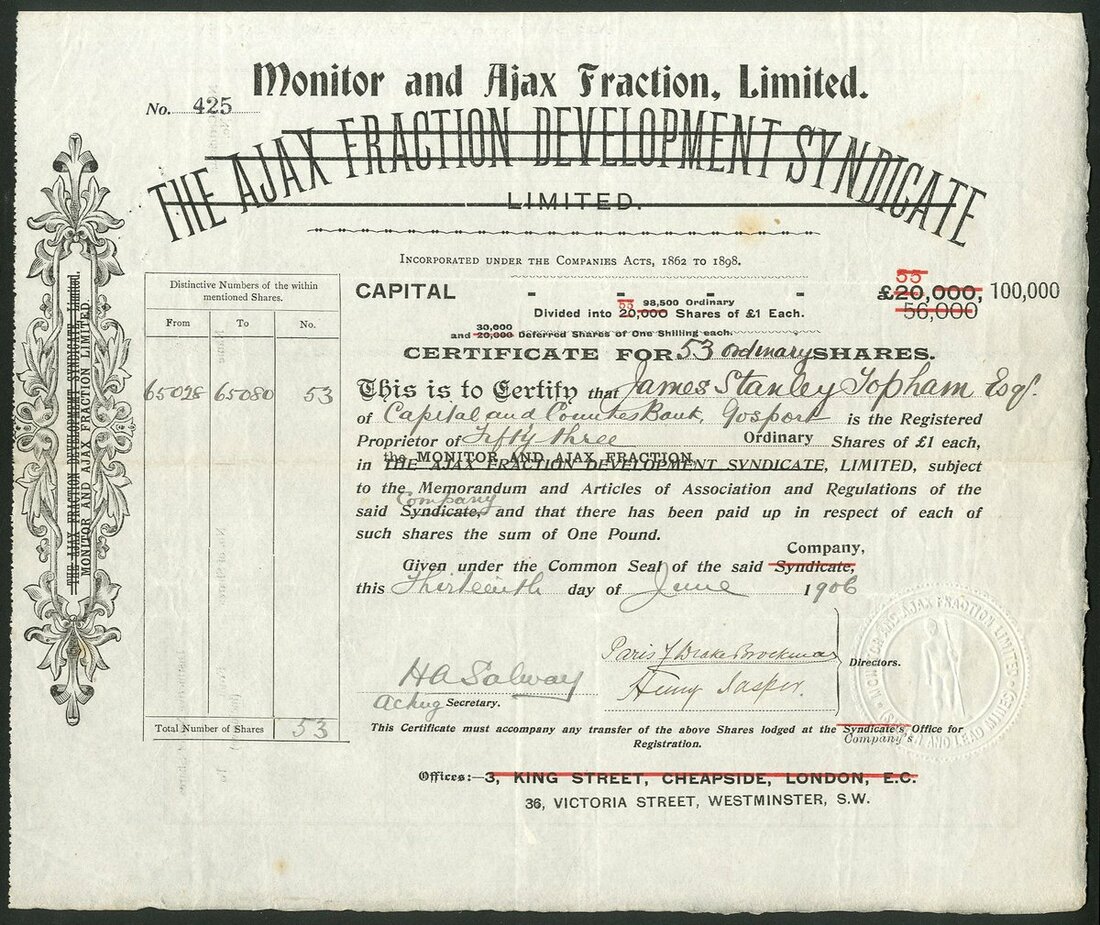 Monitor and Ajax Fraction, Limited.
No. 425
THE AJAX FRACTION DEVELOPMENT SYNDICATE
LIMITED.
INCORPORATED UNDER THE COMPANIES ACTS, 1862 TO 1898.
55
CAPITAL - - - - £20,000, 100,000
56,000
55 98,500 Ordinary
Divided into 20,000 Shares of £1 Each.
30,000
and 20,000 Deferred Shares of One Shilling each.
CERTIFICATE FOR 53 ordinary SHARES.
This is to Certify that James Stanley Topham Esq.
of Capital and Counties Bank, Gosport is the Registered
Proprietor of Fifty three Ordinary Shares of £1 each,
the MONITOR AND AJAX FRACTION
in THE AJAX FRACTION DEVELOPMENT SYNDICATE, LIMITED, subject
to the Memorandum and Articles of Association and Regulations of the
Company
said Syndicate, and that there has been paid up in respect of each of
such shares the sum of One Pound.
Company,
Given under the Common Seal of the said Syndicate,
this Thirteenth day of June 1906
Distinctive Numbers of the within
mentioned Shares.
From To No.
65028 65080 53
Total Number of Shares 53
THE AJAX FRACTION DEVELOPMENT SYNDICATE Limited.
MONITOR AND AJAX FRACTION LIMITED.
H A Salway
Acting Secretary.
Paris F Drake Brockman
Henry Jasper.
Directors.
MONITOR AND AJAX FRACTION LIMITED
AND LEAD MINES
This Certificate must accompany any transfer of the above Shares lodged at the Syndicate's Office for
Company's
Registration.
Offices:—3, KING STREET, CHEAPSIDE, LONDON, E.C.
36, VICTORIA STREET, WESTMINSTER, S.W.